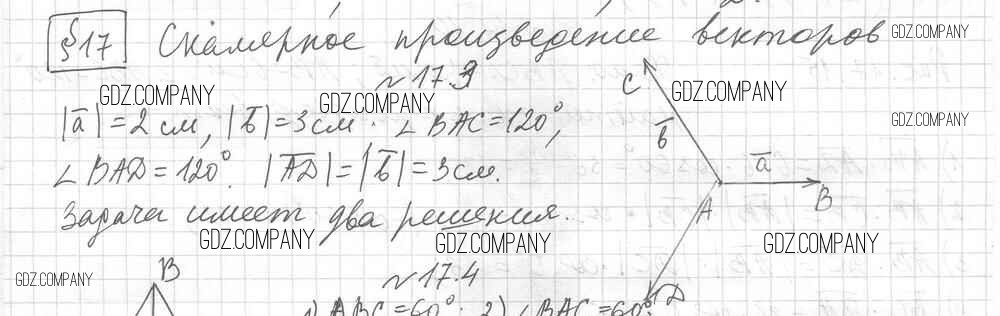 §17 Скалярное произведение векторов
GDZ.COMPANY
№17.3
GDZ.COMPANY
GDZ.COMPANY
GDZ.COMPANY
C
|a̅|=2 см, |b̅|=3 см. ∠BAC=120°,
GDZ.COMPANY
b̅
a̅
∠BAD=120°. |A̅D̅|=|b̅|=3 см.
A
B
Задача имеет два решения.
GDZ.COMPANY
GDZ.COMPANY
GDZ.COMPANY
GDZ.COMPANY
B
№17.4
D
1) ABC=60°. 2) ∠BAC=60°.